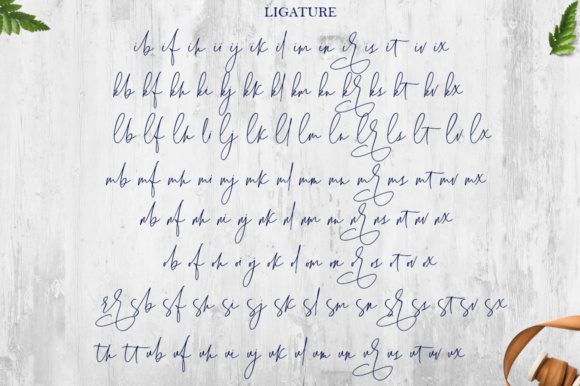 LIGATURE
ib if ih ii ij ik il im in ir is it iv ix
kb kf kh ki kj kk kl km kn kr ks kt kv kx
lb lf lh li lj lk ll lm ln lr ls lt lv lx
mb mf mh mi mj mk ml mm mn mr ms mt mv mx
nb nf nh ni nj nk nl nm nn nr ns nt nv nx
ob of oh oi oj ok ol om on or os ot ov ox
rr sb sf sh si sj sk sl sm sn sr ss st sv sx
th tt ub uf uh ui uj uk ul um un ur us ut uv ux